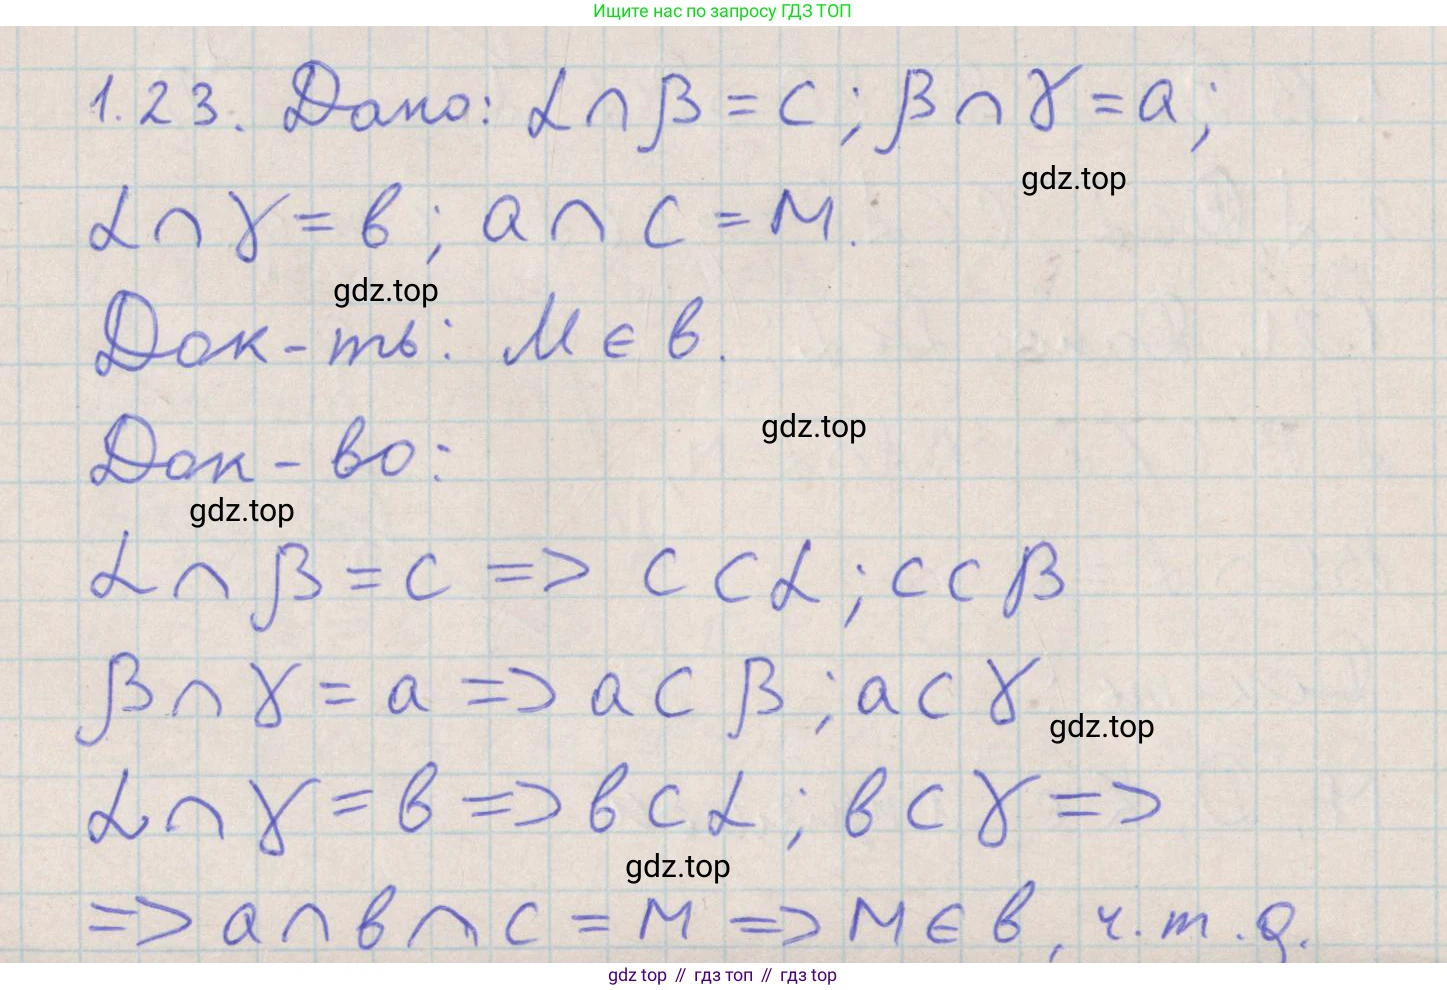 Ищите нас по запросу ГДЗ ТОП
1.23. Дано: α ∩ β = c ; β ∩ γ = a ;
gdz.top
α ∩ γ = в ; a ∩ c = M.
gdz.top
Док-ть: M ∈ в.
gdz.top
Док-во:
gdz.top
α ∩ β = c => c ⊂ α ; c ⊂ β
β ∩ γ = a => a ⊂ β ; a ⊂ γ
gdz.top
α ∩ γ = в => в ⊂ α ; в ⊂ γ =>
gdz.top
=> a ∩ в ∩ c = M => M ∈ в, ч.т.д.
gdz top // гдз топ // гдз top